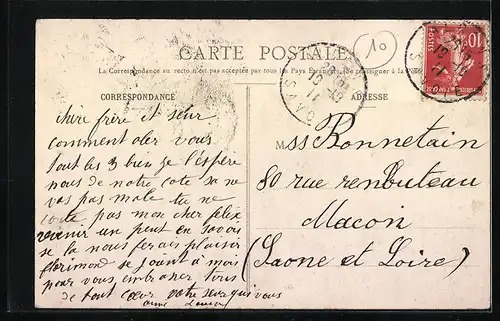 CARTE POSTALE
La Correspondance au recto n'est pas acceptée par tous les Pays Étrangers (Se renseigner à la Poste
CORRESPONDANCE
ADRESSE
10
POSTES
chire frère et seur
comment aler vous
tout les 3 bien je l'éspère
nous de notre cote sa ne
vas pas male tu ne
conte pas mon cher felix
revenir un peut en savois
se la nous ferais plaisir
florimond se joint à mois
pour vous embraser tous
de tout cœur votre seur qui vous
aime
M
ss Bonnetain
80 rue renbuteau
Macon
(Saone et Loire)